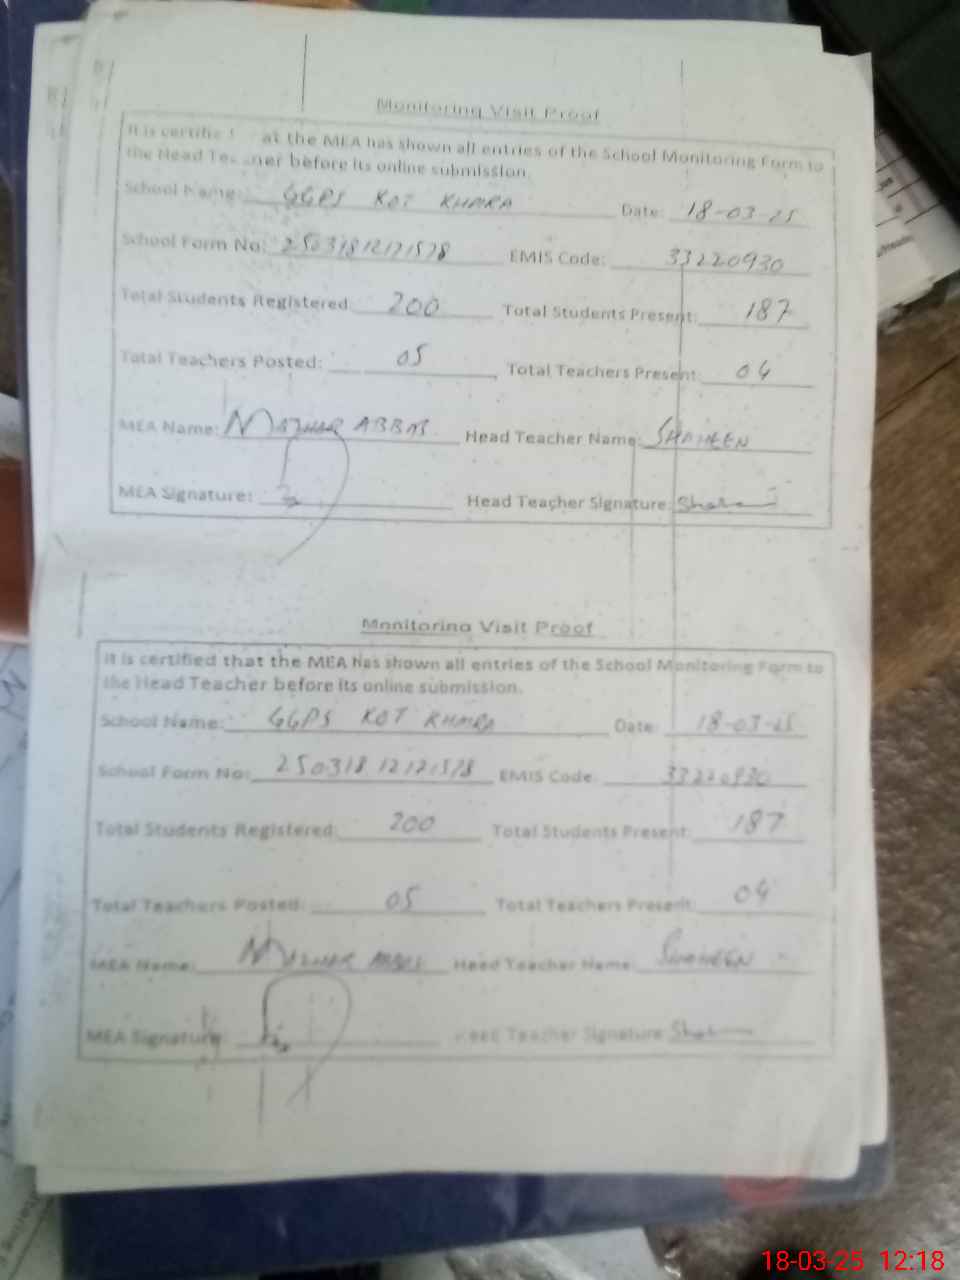 Monitoring Visit Proof
It is certifie at the MEA has shown all entries of the School Monitoring Form to
the Head Te ner before its online submission.
School Name: GGPS KOT KHARA Date: 18-03-25
School Form No: 25031812121578 EMIS Code: 33220930
Total Students Registered: 200 Total Students Present: 187
Total Teachers Posted: 05 Total Teachers Present: 04
MEA Name: MAZHAR ABBAS Head Teacher Name: SHAHEEN
MEA Signature: Head Teacher Signature:
Monitoring Visit Proof
It is certified that the MEA has shown all entries of the School Monitoring Form to
the Head Teacher before its online submission.
School Name: GGPS KOT KHARA Date: 18-03-25
School Form No: 25031812121578 EMIS Code: 33220930
Total Students Registered: 200 Total Students Present: 187
Total Teachers Posted: 05 Total Teachers Present: 04
MEA Name: MAZHAR ABBAS Head Teacher Name: SHAHEEN
MEA Signature: Head Teacher Signature:
18-03-25 12:18